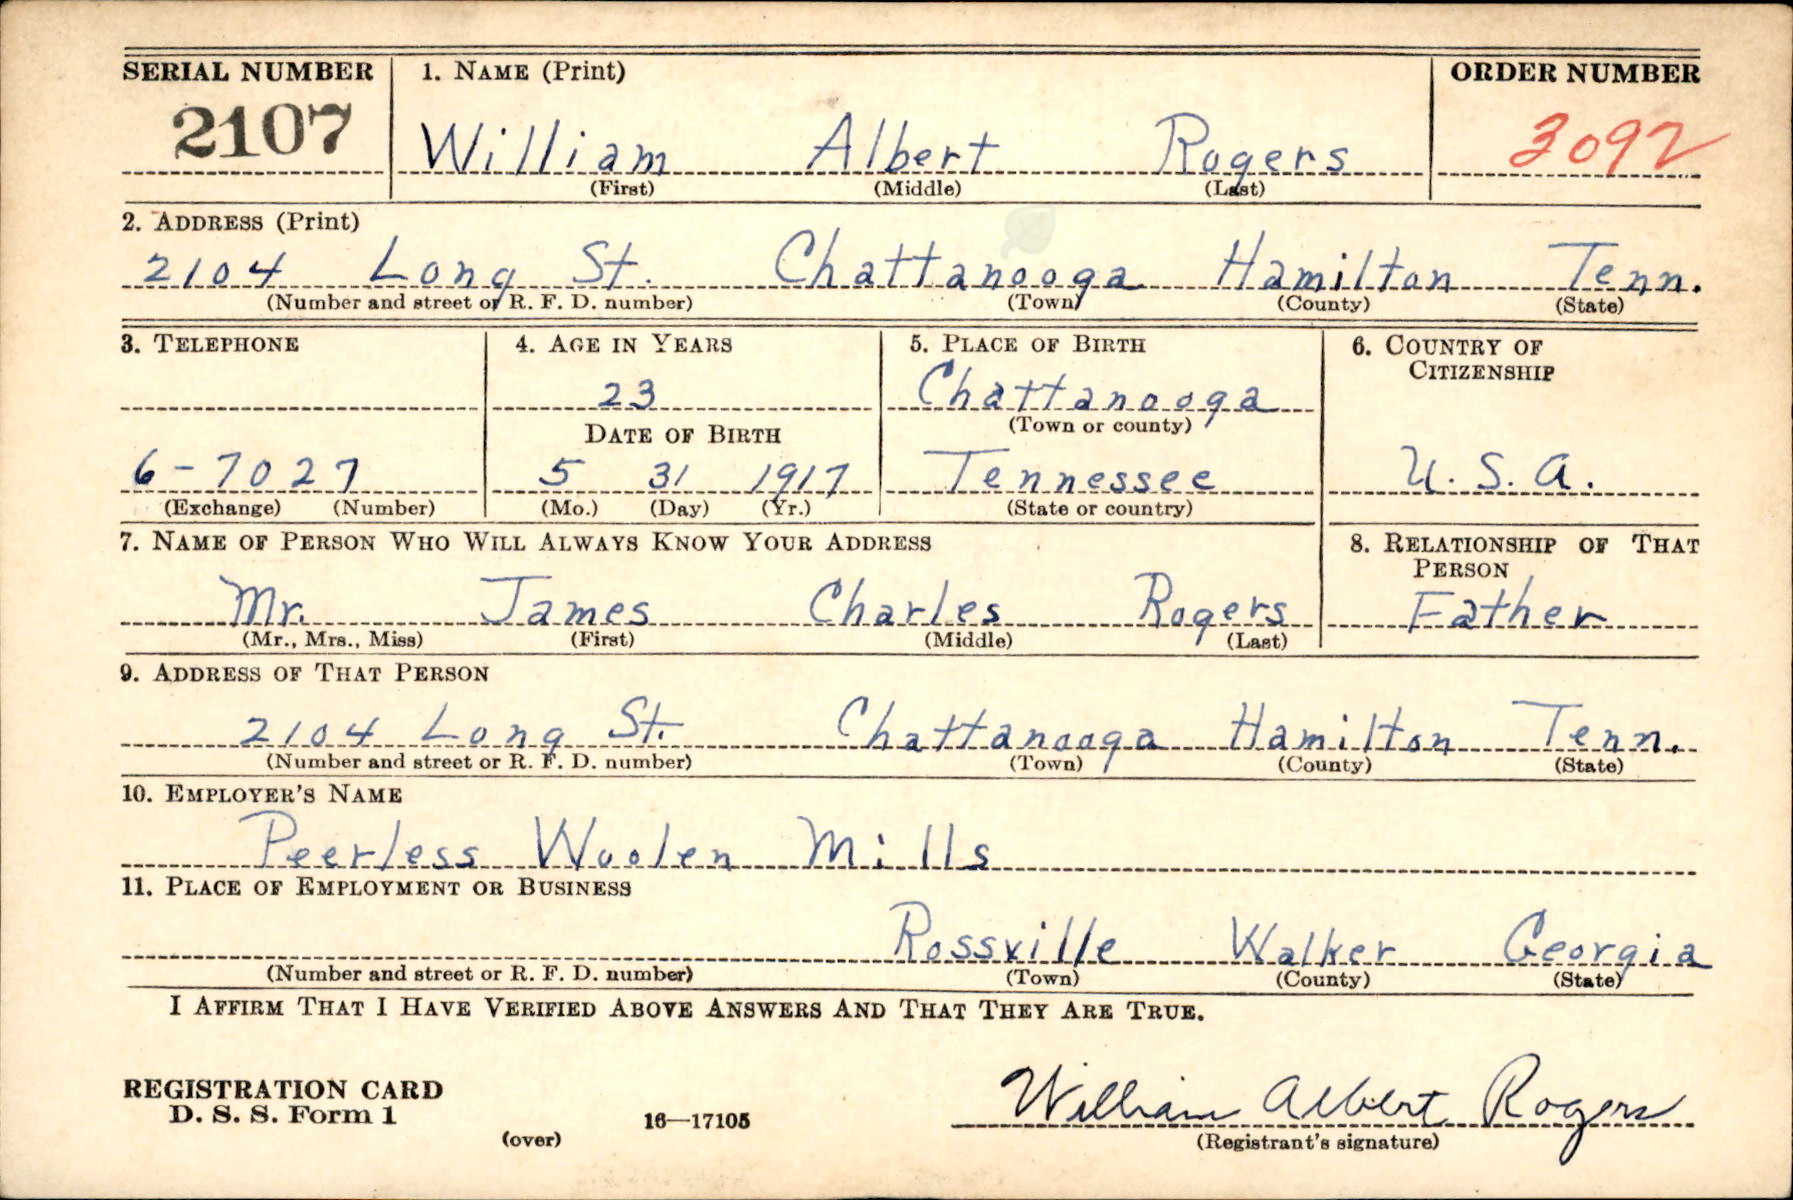 SERIAL NUMBER 1. NAME (Print) ORDER NUMBER
2107 William Albert Rogers 3092
(First) (Middle) (Last)
2. ADDRESS (Print)
2104 Long St. Chattanooga Hamilton Tenn.
(Number and street or R. F. D. number) (Town) (County) (State)
3. TELEPHONE 4. AGE IN YEARS 5. PLACE OF BIRTH 6. COUNTRY OF
CITIZENSHIP
23 Chattanooga
(Town or county)
DATE OF BIRTH
6-7027 5 31 1917 Tennessee U.S.A.
(Exchange) (Number) (Mo.) (Day) (Yr.) (State or country)
7. NAME OF PERSON WHO WILL ALWAYS KNOW YOUR ADDRESS 8. RELATIONSHIP OF THAT
PERSON
Mr. James Charles Rogers Father
(Mr., Mrs., Miss) (First) (Middle) (Last)
9. ADDRESS OF THAT PERSON
2104 Long St. Chattanooga Hamilton Tenn.
(Number and street or R. F. D. number) (Town) (County) (State)
10. EMPLOYER'S NAME
Peerless Woolen Mills
11. PLACE OF EMPLOYMENT OR BUSINESS
Rossville Walker Georgia
(Number and street or R. F. D. number) (Town) (County) (State)
I AFFIRM THAT I HAVE VERIFIED ABOVE ANSWERS AND THAT THEY ARE TRUE.
REGISTRATION CARD
D. S. S. Form 1 16—17105 William Albert Rogers
(over) (Registrant's signature)